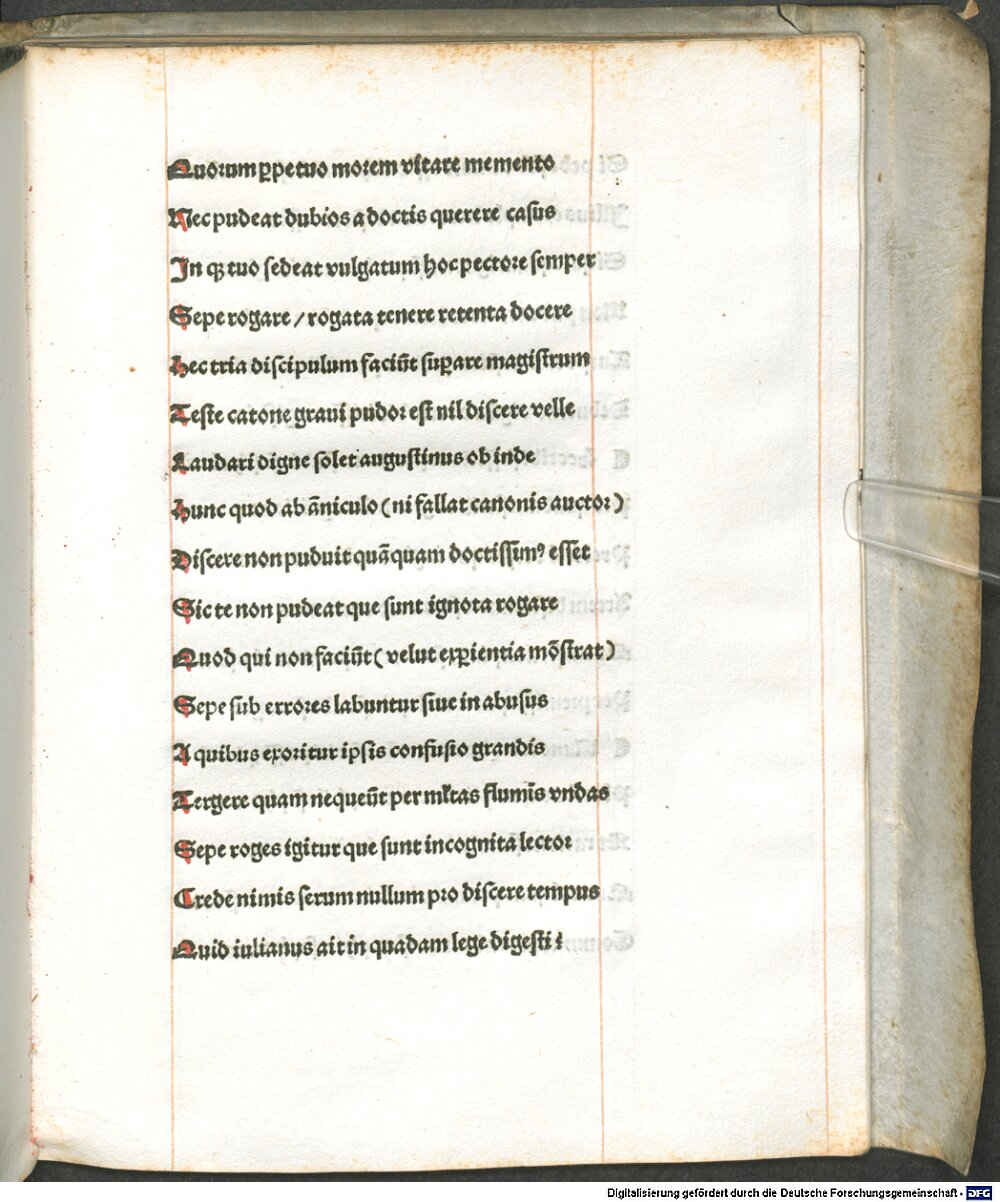 Quorum ꝑpetuo morem vitare memento
Nec pudeat dubios a doctis querere casus
In qꝫ tuo sedeat vulgatum hoc pectore semper
Sepe rogare / rogata tenere retenta docere
Hec tria discipulum faciūt suꝑare magistrum
Teste catone graui pudor est nil discere velle
Laudari digne solet augustinus ob inde
Hunc quod ab āniculo (ni fallat canonis auctor)
Discere non puduit quāquam doctissimꝰ esset
Sic te non pudeat que sunt ignota rogare
Quod qui non faciūt (velut exꝑientia mōstrat)
Sepe sub errores labuntur siue in abusus
A quibus exoritur ipsis confusio grandis
Tergere quam nequeūt per ml̄tas flumīs vndas
Sepe roges igitur que sunt incognita lector
Crede nimis serum nullum pro discere tempus
Quid iulianus ait in quadam lege digesti?
Digitalisierung gefördert durch die Deutsche Forschungsgemeinschaft - DFG